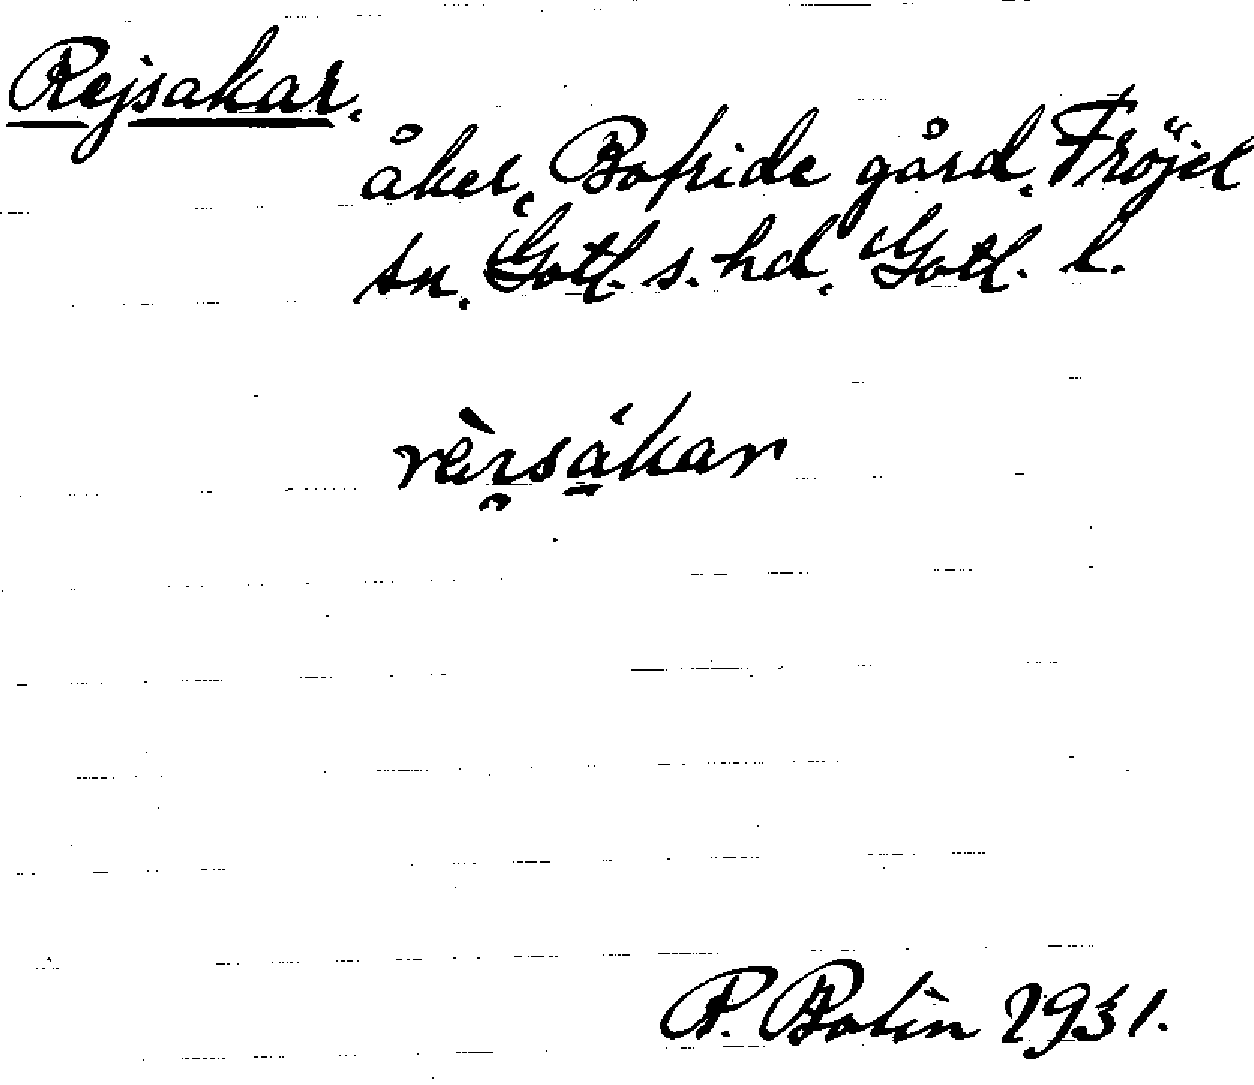 Rejsakar.
åker, Bofride gård, Fröjel
sn, Gotl. s. hd, Gotl. l.
rèɪ̯sákar
P. Bolin 1931.